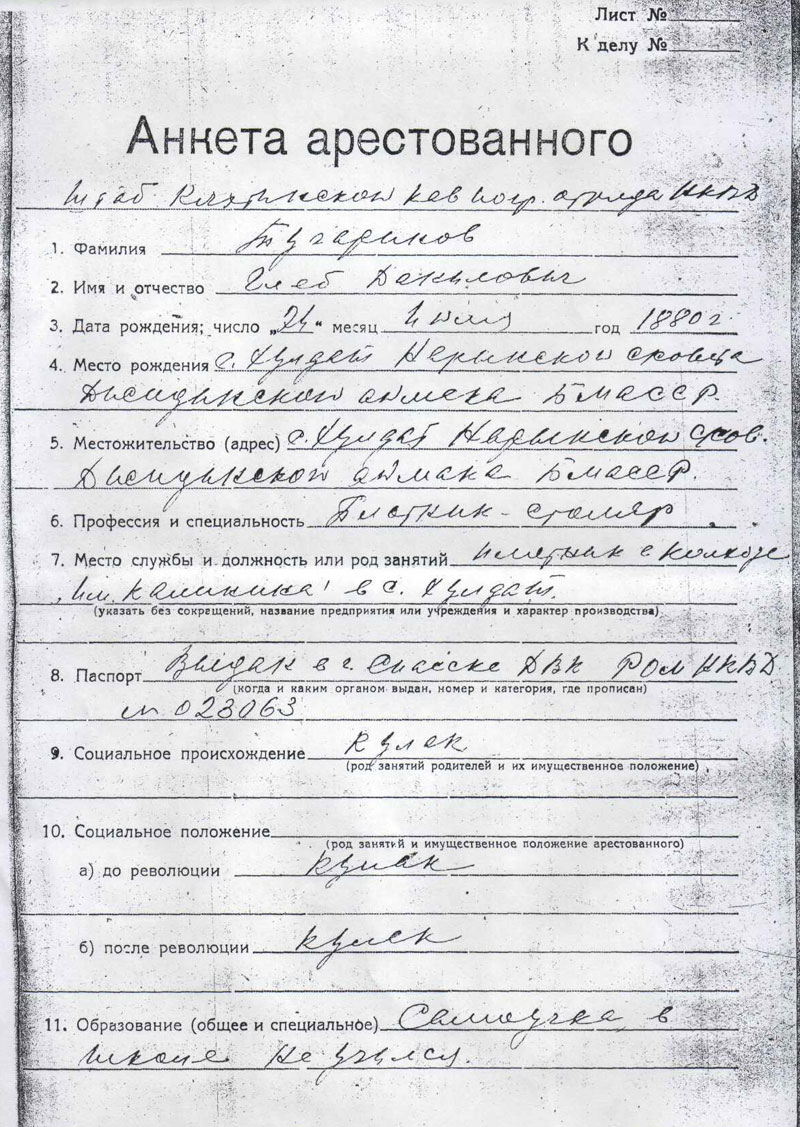 Лист №
К делу №
Анкета арестованного
Штаб Кяхтинской кав погр. отряда НКВД
1. Фамилия
2. Имя и отчество Глеб Данилович
3. Дата рождения; число „24“ месяц Июля год 1880 г
4. Место рождения с. Хулдат Нарынской сковета
Джидинского аймака БМАССР.
5. Местожительство (адрес) с. Хулдат Нарынской сков.
Джидинского аймака БМАССР.
6. Профессия и специальность столяр.
7. Место службы и должность или род занятий в колхозе
им. Калинина в с. Хулдат.
(указать без сокращений, название предприятия или учреждения и характер производства)
8. Паспорт Выдан в г. Спасске ДВК РОМ НКВД
(когда и каким органом выдан, номер и категория, где прописан)
023063
9. Социальное происхождение кулак
(род занятий родителей и их имущественное положение)
10. Социальное положение
(род занятий и имущественное положение арестованного)
а) до революции кулак
б) после революции кулак
11. Образование (общее и специальное) Самоучка, в
школе не учился.